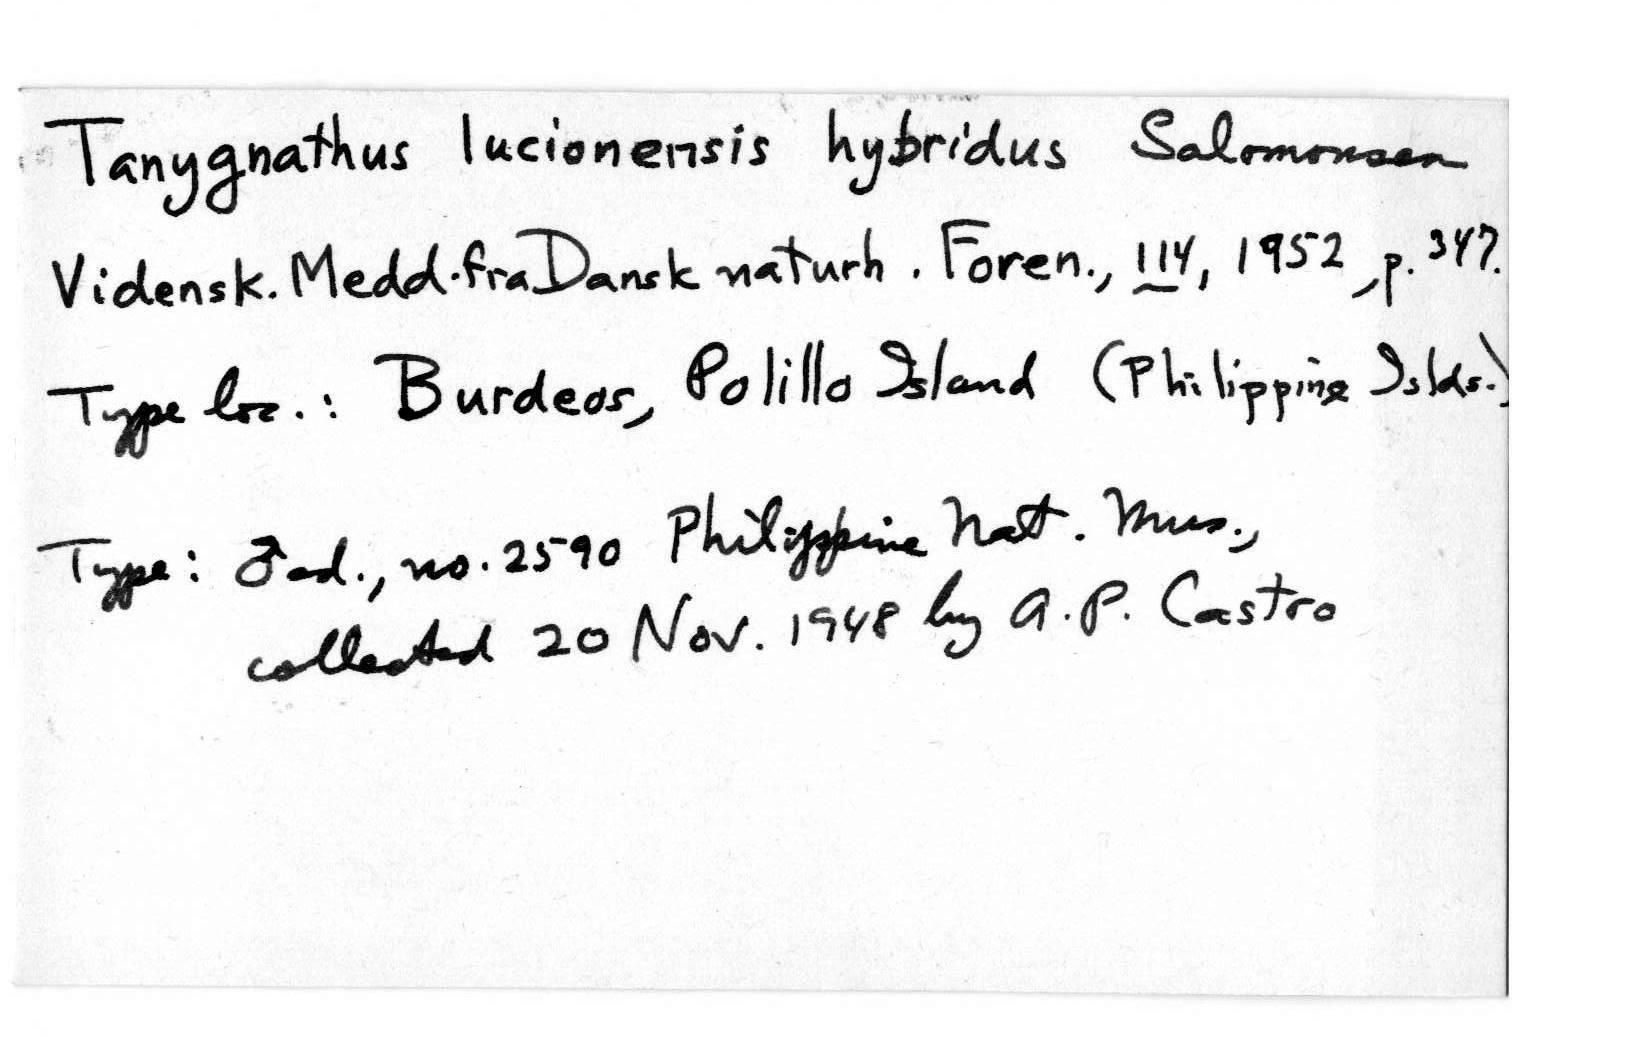 Tanygnathus lucionensis hybridus Salomonsen
Vidensk. Medd. fra Dansk naturh. Foren., 114, 1952, p. 347.
Type loc.: Burdeos, Polillo Island (Philippine Islds.)
Type: ♂ ad., no. 2590 Philippine Nat. Mus.,
collected 20 Nov. 1948 by A. P. Castro